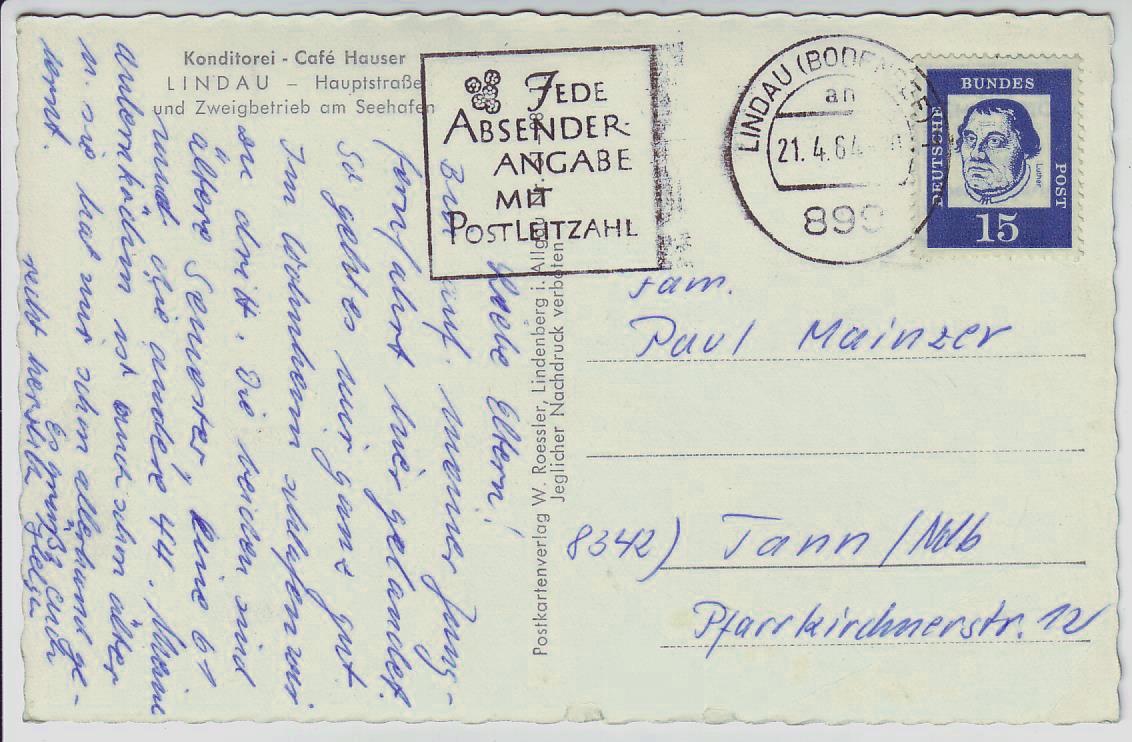 Konditorei - Café Hauser
LINDAU – Hauptstraße
und Zweigbetrieb am Seehafen
JEDE
ABSENDER-
ANGABE
MIT
POSTLEITZAHL
LINDAU (BODENSEE)
an
21.4.64
899
DEUTSCHE BUNDESPOST
Luther
15
Postkartenverlag W. Roessler, Lindenberg i. Allgäu
Jeglicher Nachdruck verboten
Liebe Eltern!
Bin meiner Jung-
fernfahrt hier gelandet.
So geht es mir ganz gut
Im Wohnheim schlafen wir
zu dritt. Die beiden sind
ältere Semester, eine 61
und die andere 44. Meine
ist auch schon älter
u. sie hat mir schon allerhand ge-
lernt.
Es grüßt euch
recht herzlich Helga
Fam.
Paul Mainzer
8342) Tann/Ndb
Pfarrkirchnerstr. 12